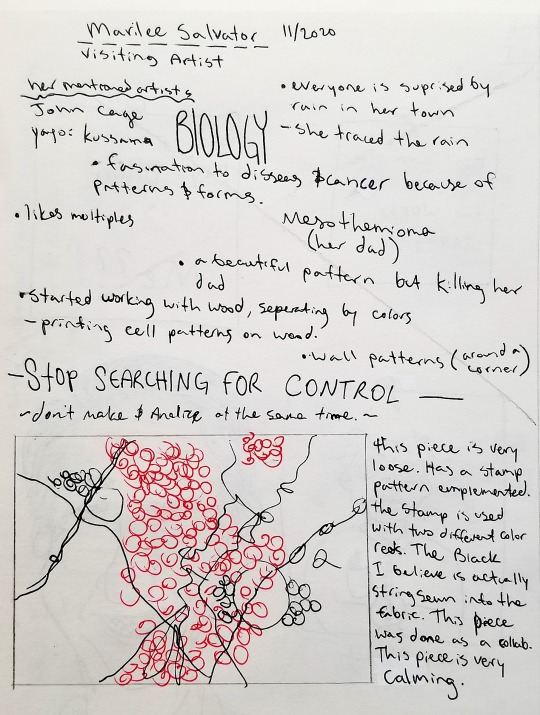 Marilee Salvator 11/2020
Visiting Artist
her mentioned artists
John Cage
yayoi Kussama
BIOLOGY
• everyone is suprised by
rain in her town
- she traced the rain
• fasination to diseeas & cancer because of
patterns & forms.
• likes multiples
Mesothemioma
(her dad)
• a beautiful pattern but killing her
dad
• started working with wood, seperating by colors
- printing cell patterns on wood.
• wall patterns (around a
corner)
- STOP SEARCHING FOR CONTROL —
~ don't make & Analize at the same time. ~
this piece is very
loose. Has a stamp
pattern emplemented.
the stamp is used
with two different color
reds. The Black
I believe is actually
string sewn into the
fabric. This piece
was done as a collab.
This piece is very
Calming.